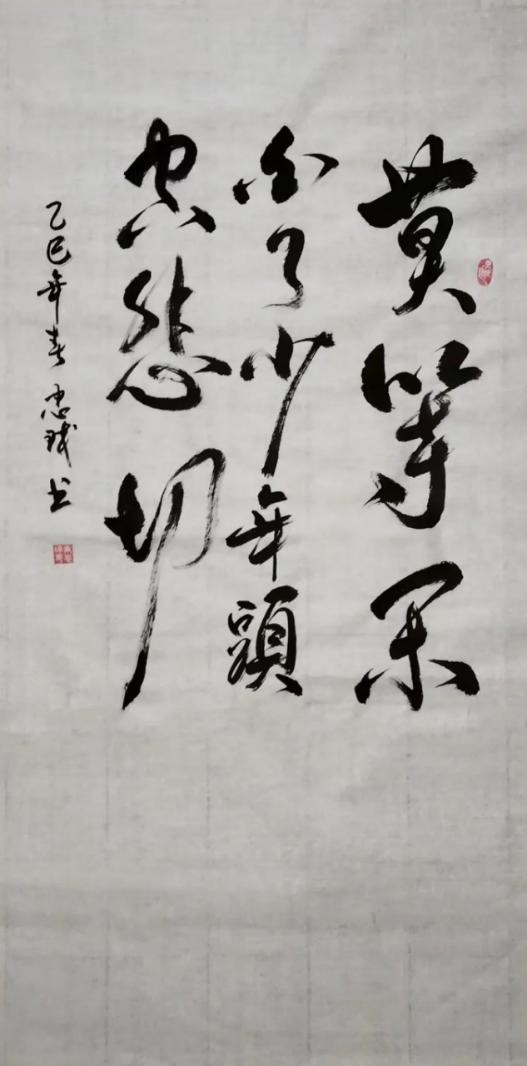 莫等閑
白了少年頭
空悲切
乙巳年春忠书